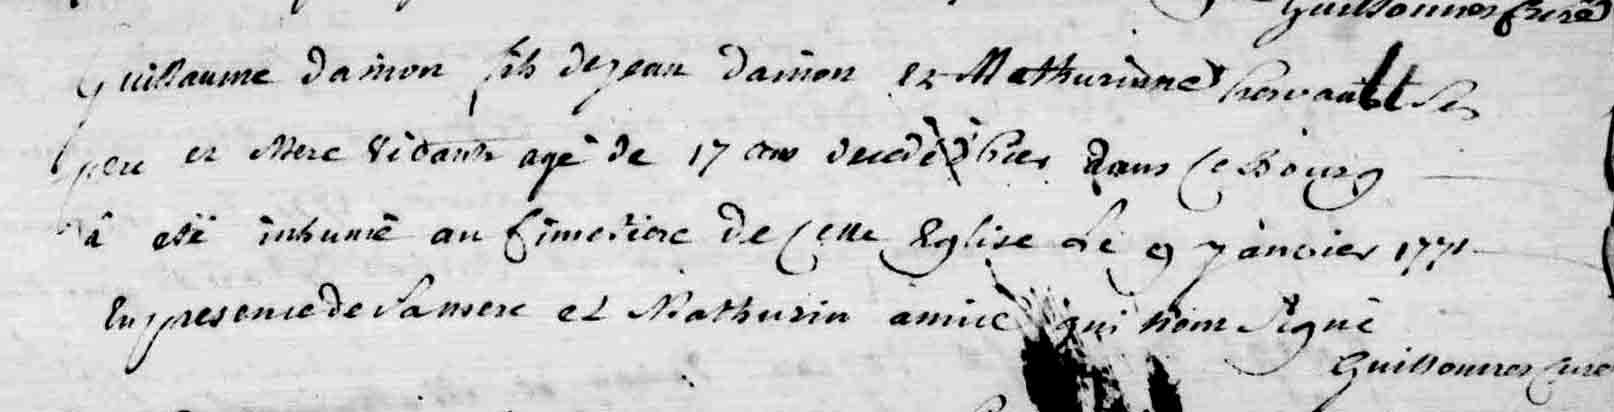 Guillaume damon fils de jean damon et Mathurinne servant ses
pere et Mere vivants agé de 17 ans decédé hier dans ce Bourg
â eté inhumé au simetiere de cette Eglise Le 9 janvier 1771
En presence de sa mere et Mathurin qui nont signé
cure